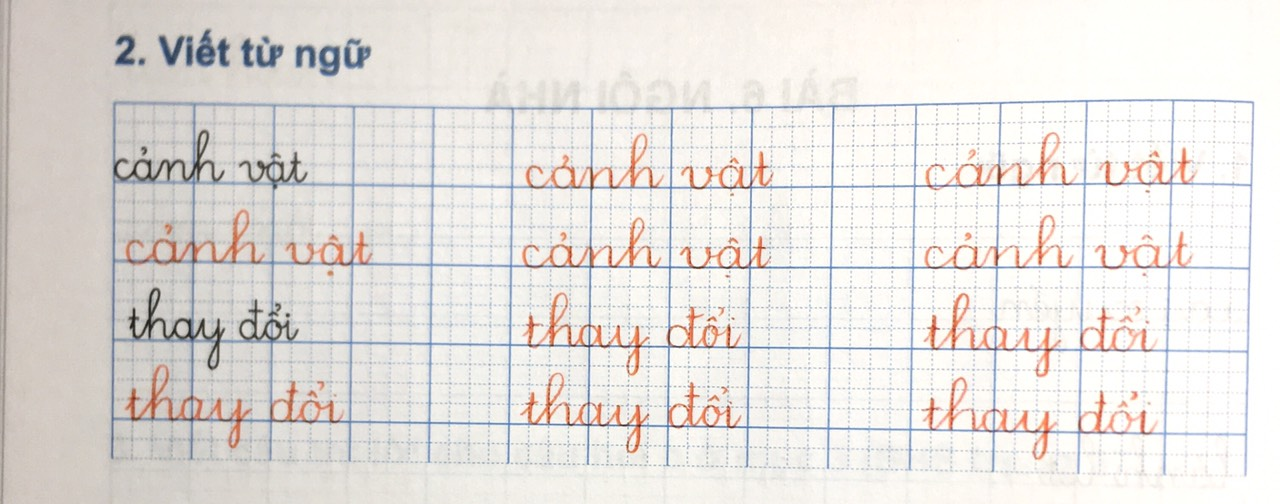 2. Viết từ ngữ
cảnh vật cảnh vật cảnh vật
cảnh vật cảnh vật cảnh vật
thay đổi thay đổi thay đổi
thay đổi thay đổi thay đổi